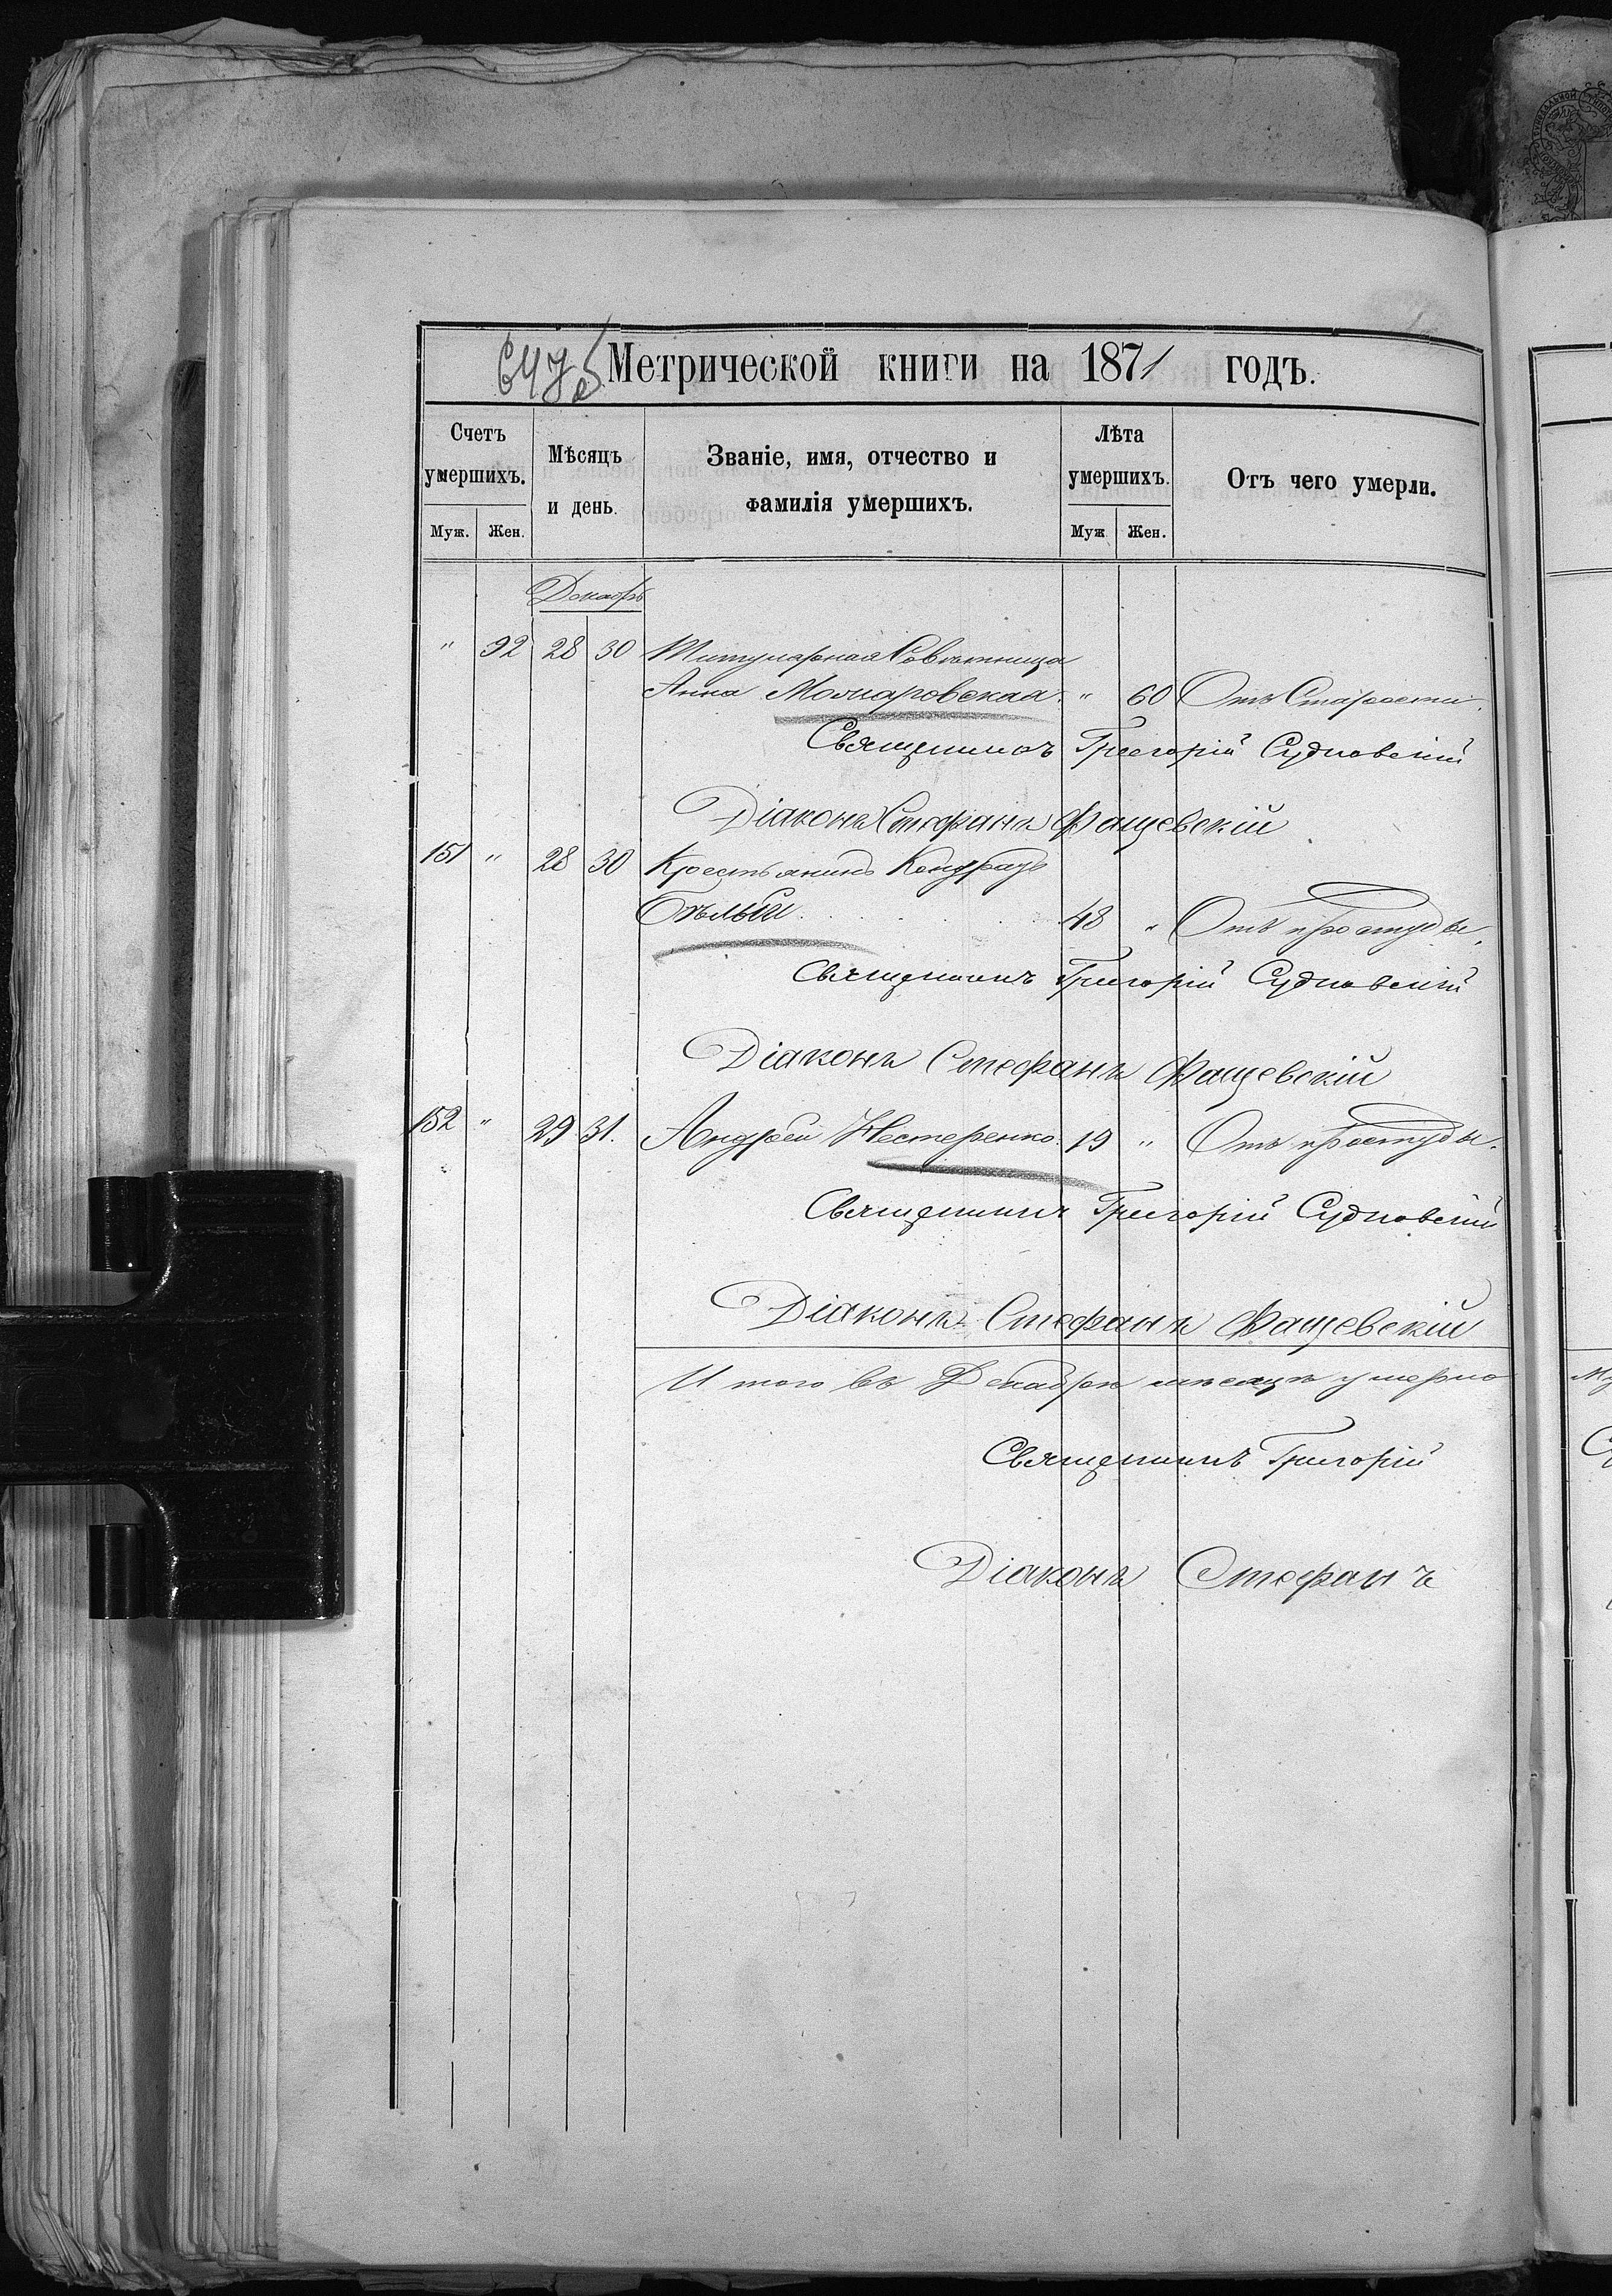 647 об Метрической книги на 1871 годъ.
Счетъ умершихъ. Мѣсяцъ и день. Званіе, имя, отчество и фамилія умершихъ. Лѣта умершихъ. Отъ чего умерли.
Муж. Жен. Муж Жен.
Декабрь
" 92 28 30 Титулярная Совѣтница
Анна " 60 Отъ Старости.
Священникъ Григорій Судковскій
Діаконъ Стефанъ Фащевскій
151 " 28 30 Крестьянинъ
Бѣлый 48 " Отъ простуды,
Священникъ Григорій Судковскій
Діаконъ Стефанъ Фащевскій
152 " 29 31. Андрей Нестеренко. 19 " Отъ простуды.
Священникъ Григорій Судковскій
Діаконъ Стефанъ Фащевскій
Итого въ Декабрѣ мѣсяцѣ умерло
Священникъ Григорій
Діаконъ Стефанъ